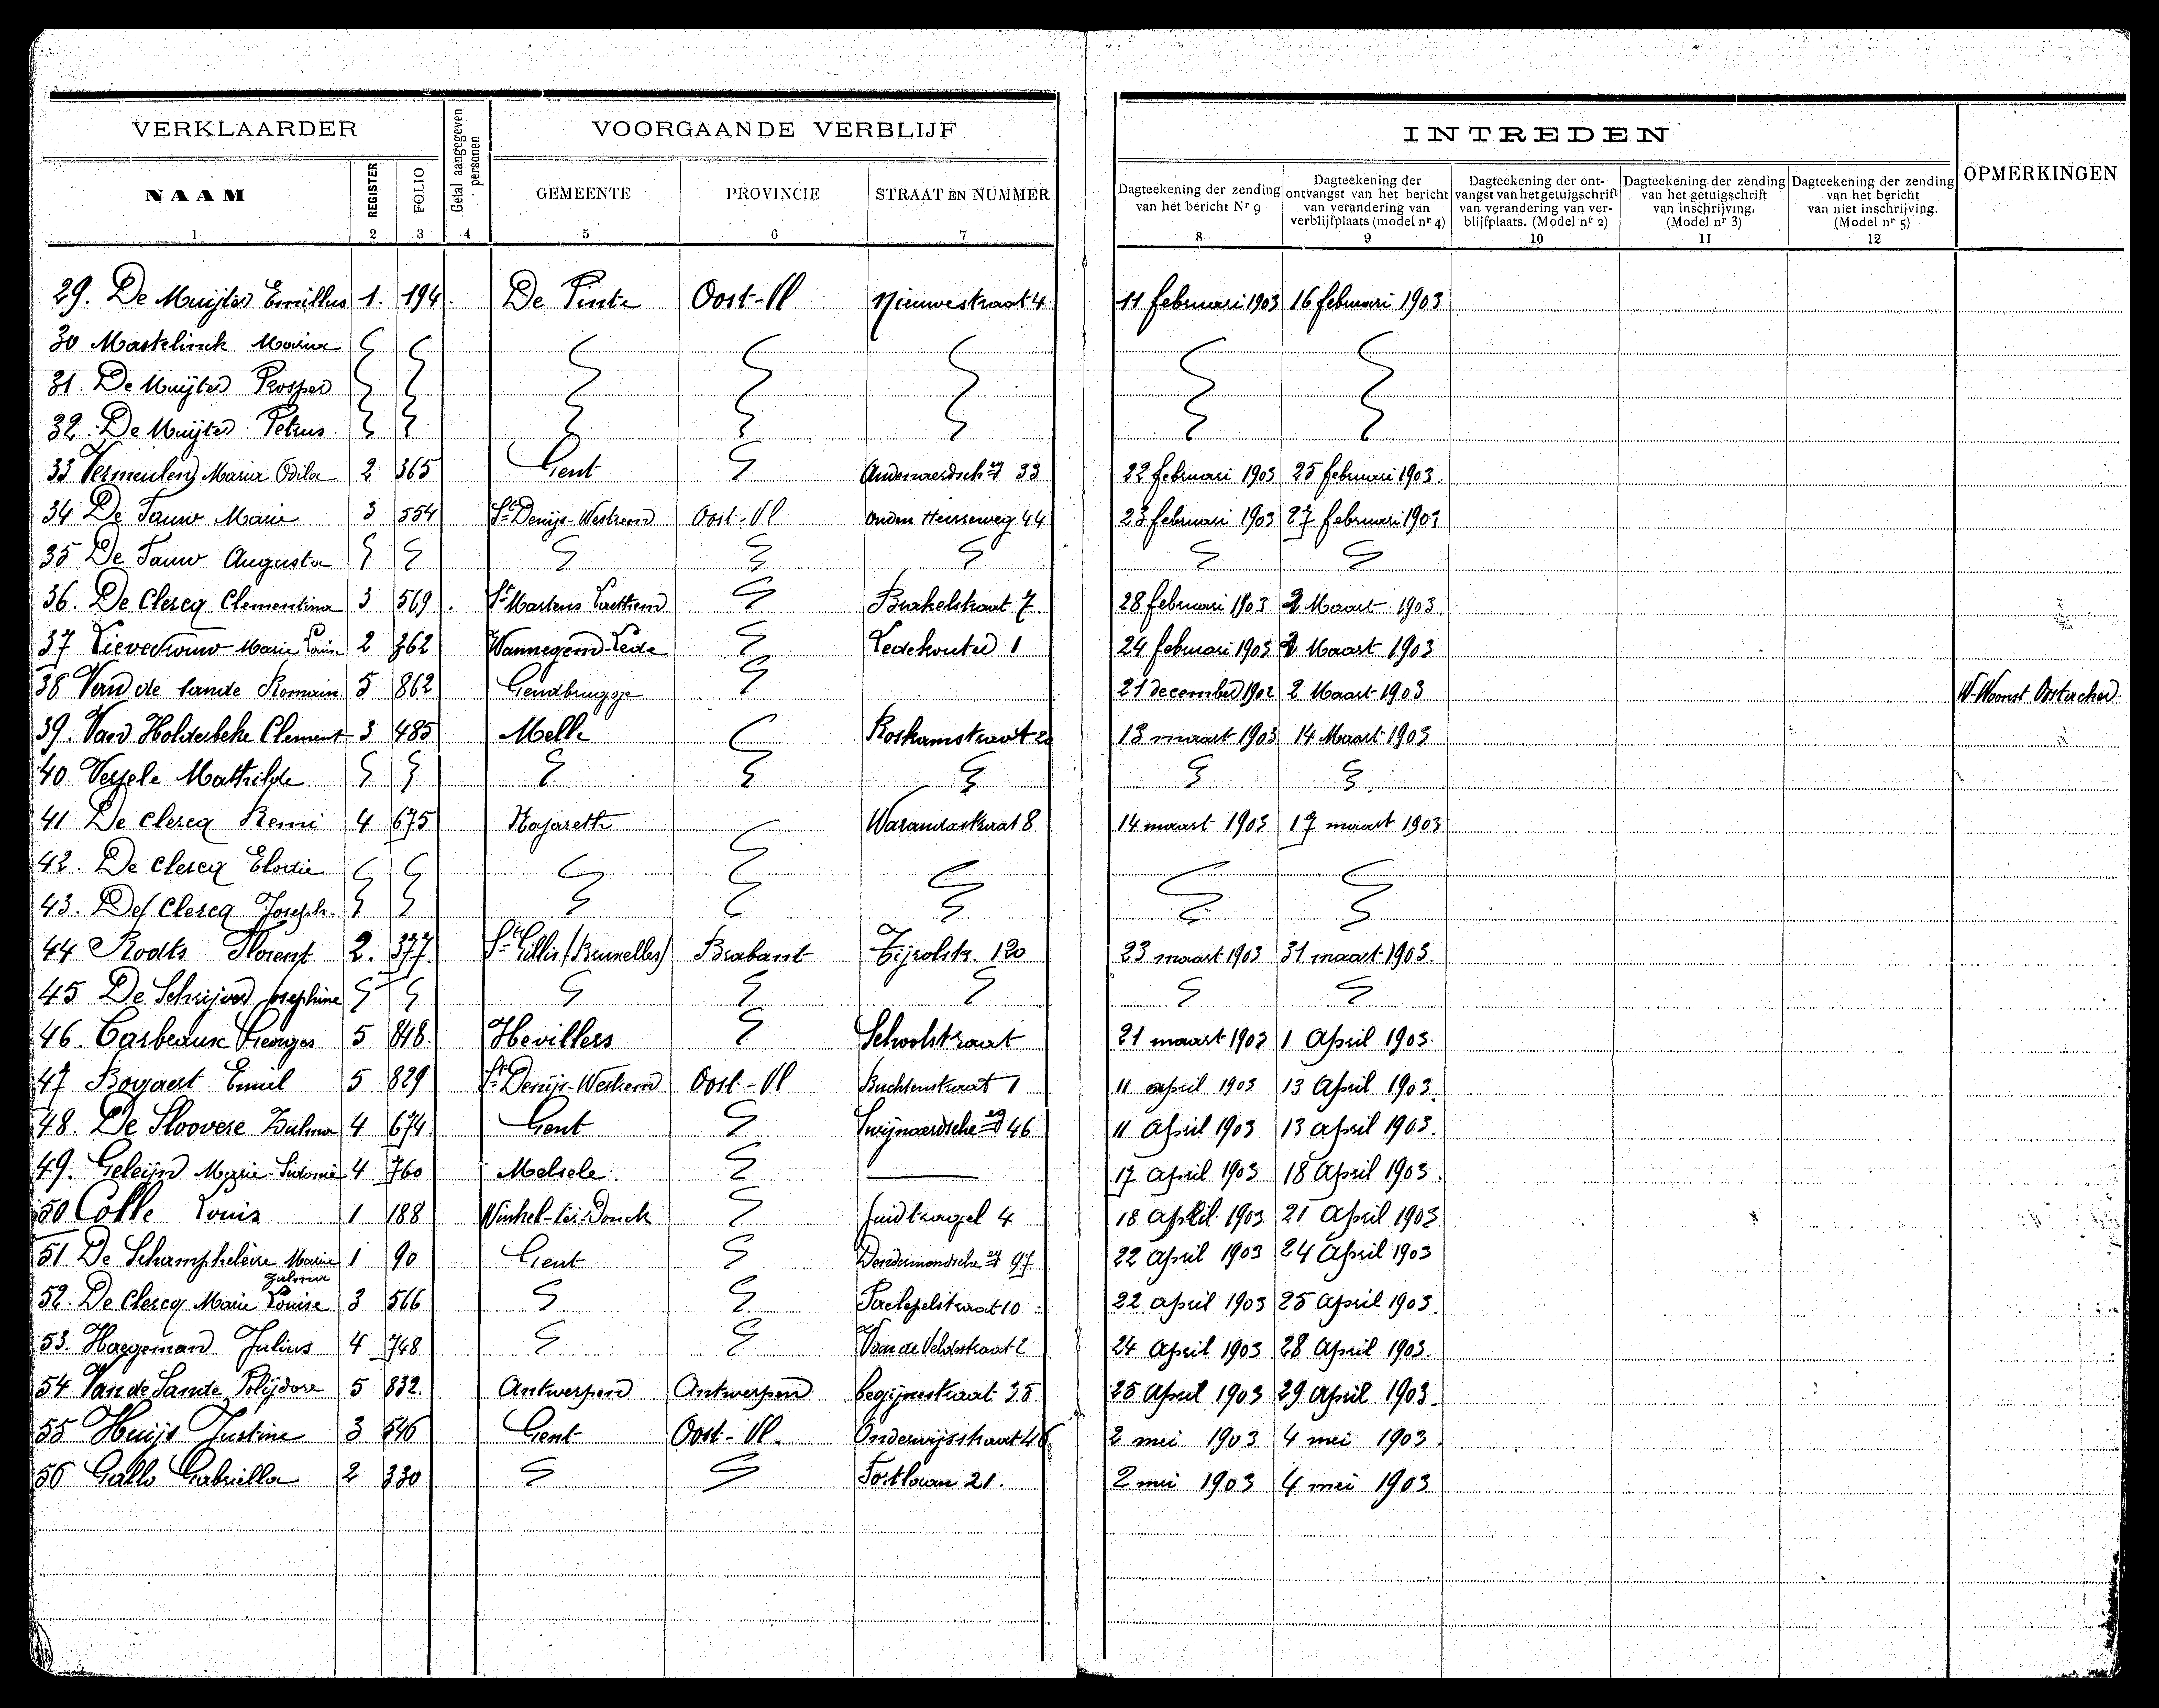 VERKLAARDER
Getal aangegeven personen
VOORGAANDE VERBLIJF
INTREDEN
OPMERKINGEN
NAAM REGISTER FOLIO GEMEENTE PROVINCIE STRAAT EN NUMMER
Dagteekening der zending van het bericht Nr 9
Dagteekening der ontvangst van het bericht van verandering van verblijfplaats (model nr 4)
Dagteekening der ontvangst van het getuigschrift van verandering van verblijfplaats. (Model nr 2)
Dagteekening der zending van het getuigschrift van inschrijving. (Model nr 3)
Dagteekening der zending van het bericht van niet inschrijving. (Model nr 5)
1 2 3 4 5 6 7 8 9 10 11 12
29. De Muijter Emillus 1. 194. De Pinte Oost-Vl Nieuwestraat 4 11 februari 1903 16 februari 1903
30 Mastelinck Maria
31. De Muijter Prosper
32. De Muijter Petrus
33 Vermeulen Maria Odila 2 365 Gent 33 22 februari 1903 25 februari 1903.
34 De Pauw Marie 3 554 St Denijs-Westrem Oost-Vl Ouden Heirweg 44 23 februari 1903 27 februari 1903
35 De Pauw Augusta
36. De Clercq Clementina 3 569. St Martens Laethem Burkelstraat 7. 28 februari 1903 2 Maart 1903.
37 Lievetrouw Marie Louise 2 362 Wannegem-Lede Ledekouter 1 24 februari 1903 2 Maart 1903
38 Van de Sande Romain 5 862 Gendbrugge 21 december 1902 2 Maart 1903 W. Woonst Oostacker.
39. Van Holderbeke Clement 3 485 Melle Roskamstraat 13 maart 1903 14 Maart 1903
40 Mathilde
41 De Clercq Remi 4 675 Nazareth Warandastraat 8 14 maart 1903 17 maart 1903
42. De Clercq Elodie
43. De Clercq Joseph.
44 Rodts Florent 2. 377. St Gillis (Bruxelles) Brabant Tijrolstr. 120 23 maart 1903 31 maart 1903.
45 De Schrijver Josephine
46. Carbeaux Georges 5 848. Hevillers Schoolstraat 21 maart 1903 1 April 1903.
47 Bogaert Emiel 5 829 St Denijs-Westrem Oost-Vl Buchtenstraat 1 11 april 1903 13 April 1903.
48. De Sloovere Zulma 4 674. Gent Swijnaerdsche 46 11 April 1903 13 april 1903.
49. Geleijn Marie Sidonie 4 760 Melsele. 17 April 1903 18 April 1903.
50 Colle Louis 1 188 Winkel-Ste-Donck Zuidtragel 4 18 April 1903 21 April 1903
51 De Schampheleire Marie Zulma 1 90 Gent Dendermondsche 97. 22 April 1903 24 April 1903
52. De Clercq Marie Louise 3 566 10. 22 april 1903 25 April 1903.
53. Haegeman Julius 4 748 Van de Veldestraat 2 24 April 1903 28 April 1903.
54 Van de Sande Polijdore 5 832. Antwerpen Antwerpen begijnestraat 35 25 April 1903 29 April 1903.
55 Huijs Justine 3 546 Gent Oost-Vl. Onderwijsstraat 46 2 mei 1903 4 mei 1903.
56 Gallo Gabriella 2 330 Fortlaan 21. 2 mei 1903 4 mei 1903